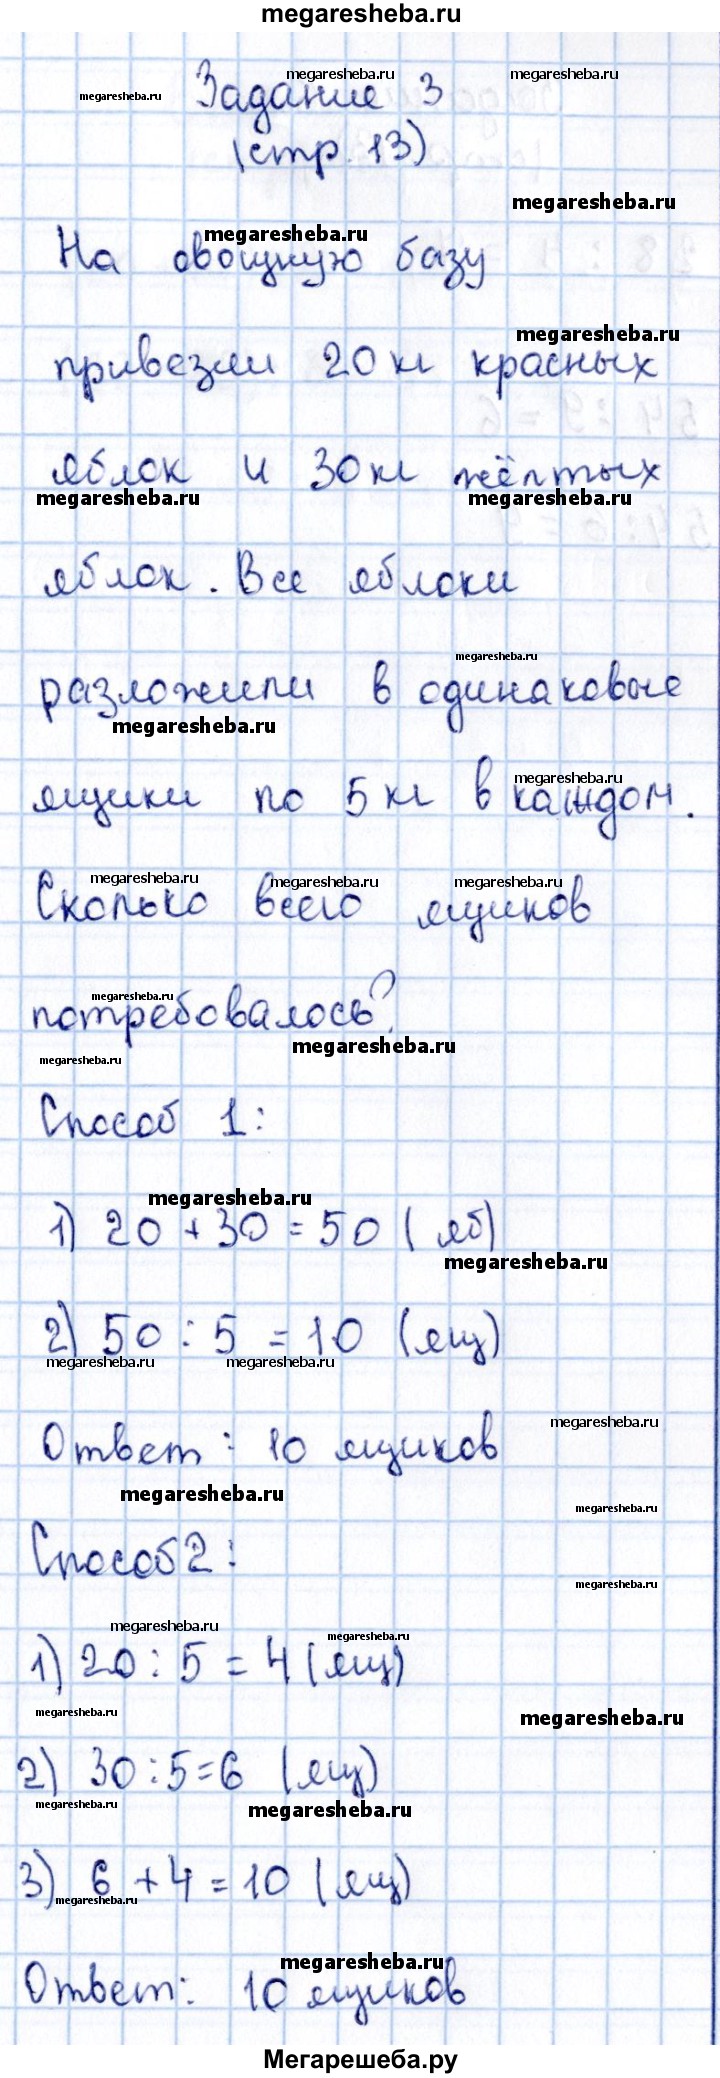 megaresheba.ru
megaresheba.ru megaresheba.ru
megaresheba.ru
Задание 3
(стр. 13)
megaresheba.ru
megaresheba.ru
На овощную базу
megaresheba.ru
привезли 20 кг красных
яблок и 30 кг жёлтых
megaresheba.ru megaresheba.ru
яблок. Все яблоки
megaresheba.ru
разложили в одинаковые
megaresheba.ru
megaresheba.ru
ящики по 5 кг в каждом.
megaresheba.ru megaresheba.ru megaresheba.ru
Сколько всего ящиков
megaresheba.ru
потребовалось?
megaresheba.ru
megaresheba.ru
Способ 1:
megaresheba.ru
1) 20 + 30 = 50 (яб)
megaresheba.ru
2) 50 : 5 = 10 (ящ)
megaresheba.ru megaresheba.ru
megaresheba.ru
Ответ: 10 ящиков
megaresheba.ru
megaresheba.ru
Способ 2:
megaresheba.ru
megaresheba.ru megaresheba.ru
1) 20 : 5 = 4 (ящ)
megaresheba.ru megaresheba.ru
2) 30 : 5 = 6 (ящ)
megaresheba.ru megaresheba.ru
3) 6 + 4 = 10 (ящ)
megaresheba.ru
megaresheba.ru
Ответ: 10 ящиков
Мегарешеба.ру